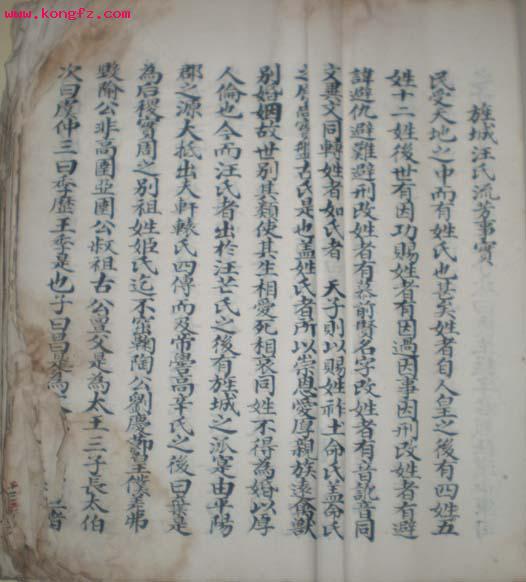 www.kongfz.com
旌城汪氏流芳事實
民受天地之中而有姓氏也甚矣姓者自人皇之後有四姓五
姓十二姓後世有因功賜姓者有因過因事因刑改姓者有避
諱避仇避難避刑改姓者有慕前賢名字改姓者有音訛音同
文異文同轉姓者如氏者 天子則以賜姓祚土命氏盖命氏
之 盤古氏是也盖姓氏者所以崇恩愛厚親族遠禽獸
別婚姻故世別其類使其生相愛死相哀同姓不得為婚以厚
人倫也今而汪氏者出於汪芒氏之後有旌城之派是由平陽
郡之源大抵出大軒轅氏四傳而及帝嚳高辛氏之後曰棄是
為后稷實周之別祖姓姬氏迄不窋鞠陶公劉慶節皇僕差弗
毀隃公非高圉亞圉公叔祖古公亶父是為太王三子長太伯
次曰虞仲三曰季歷王季是也子曰昌是為